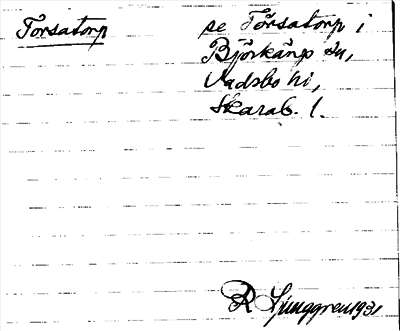 Torsatorp se Torsatorp i
Björkängs sn,
Vadsbo hd,
Skarab. l.
R Ljunggren 1931